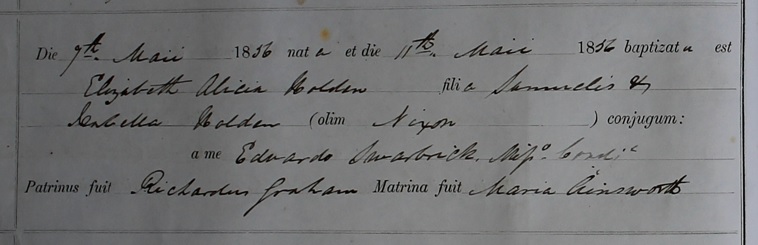 Die 7th. Maii 1856 nata et die 11th. Maii 1856 baptizata est
Elizabeth Alicia Holden filia Samuelis &
Isabella Holden (olim Nixon ) conjugum:
a me Edvardo Swarbrick. Misso.
Patrinus fuit Richardus Graham Matrina fuit Maria Ainsworth